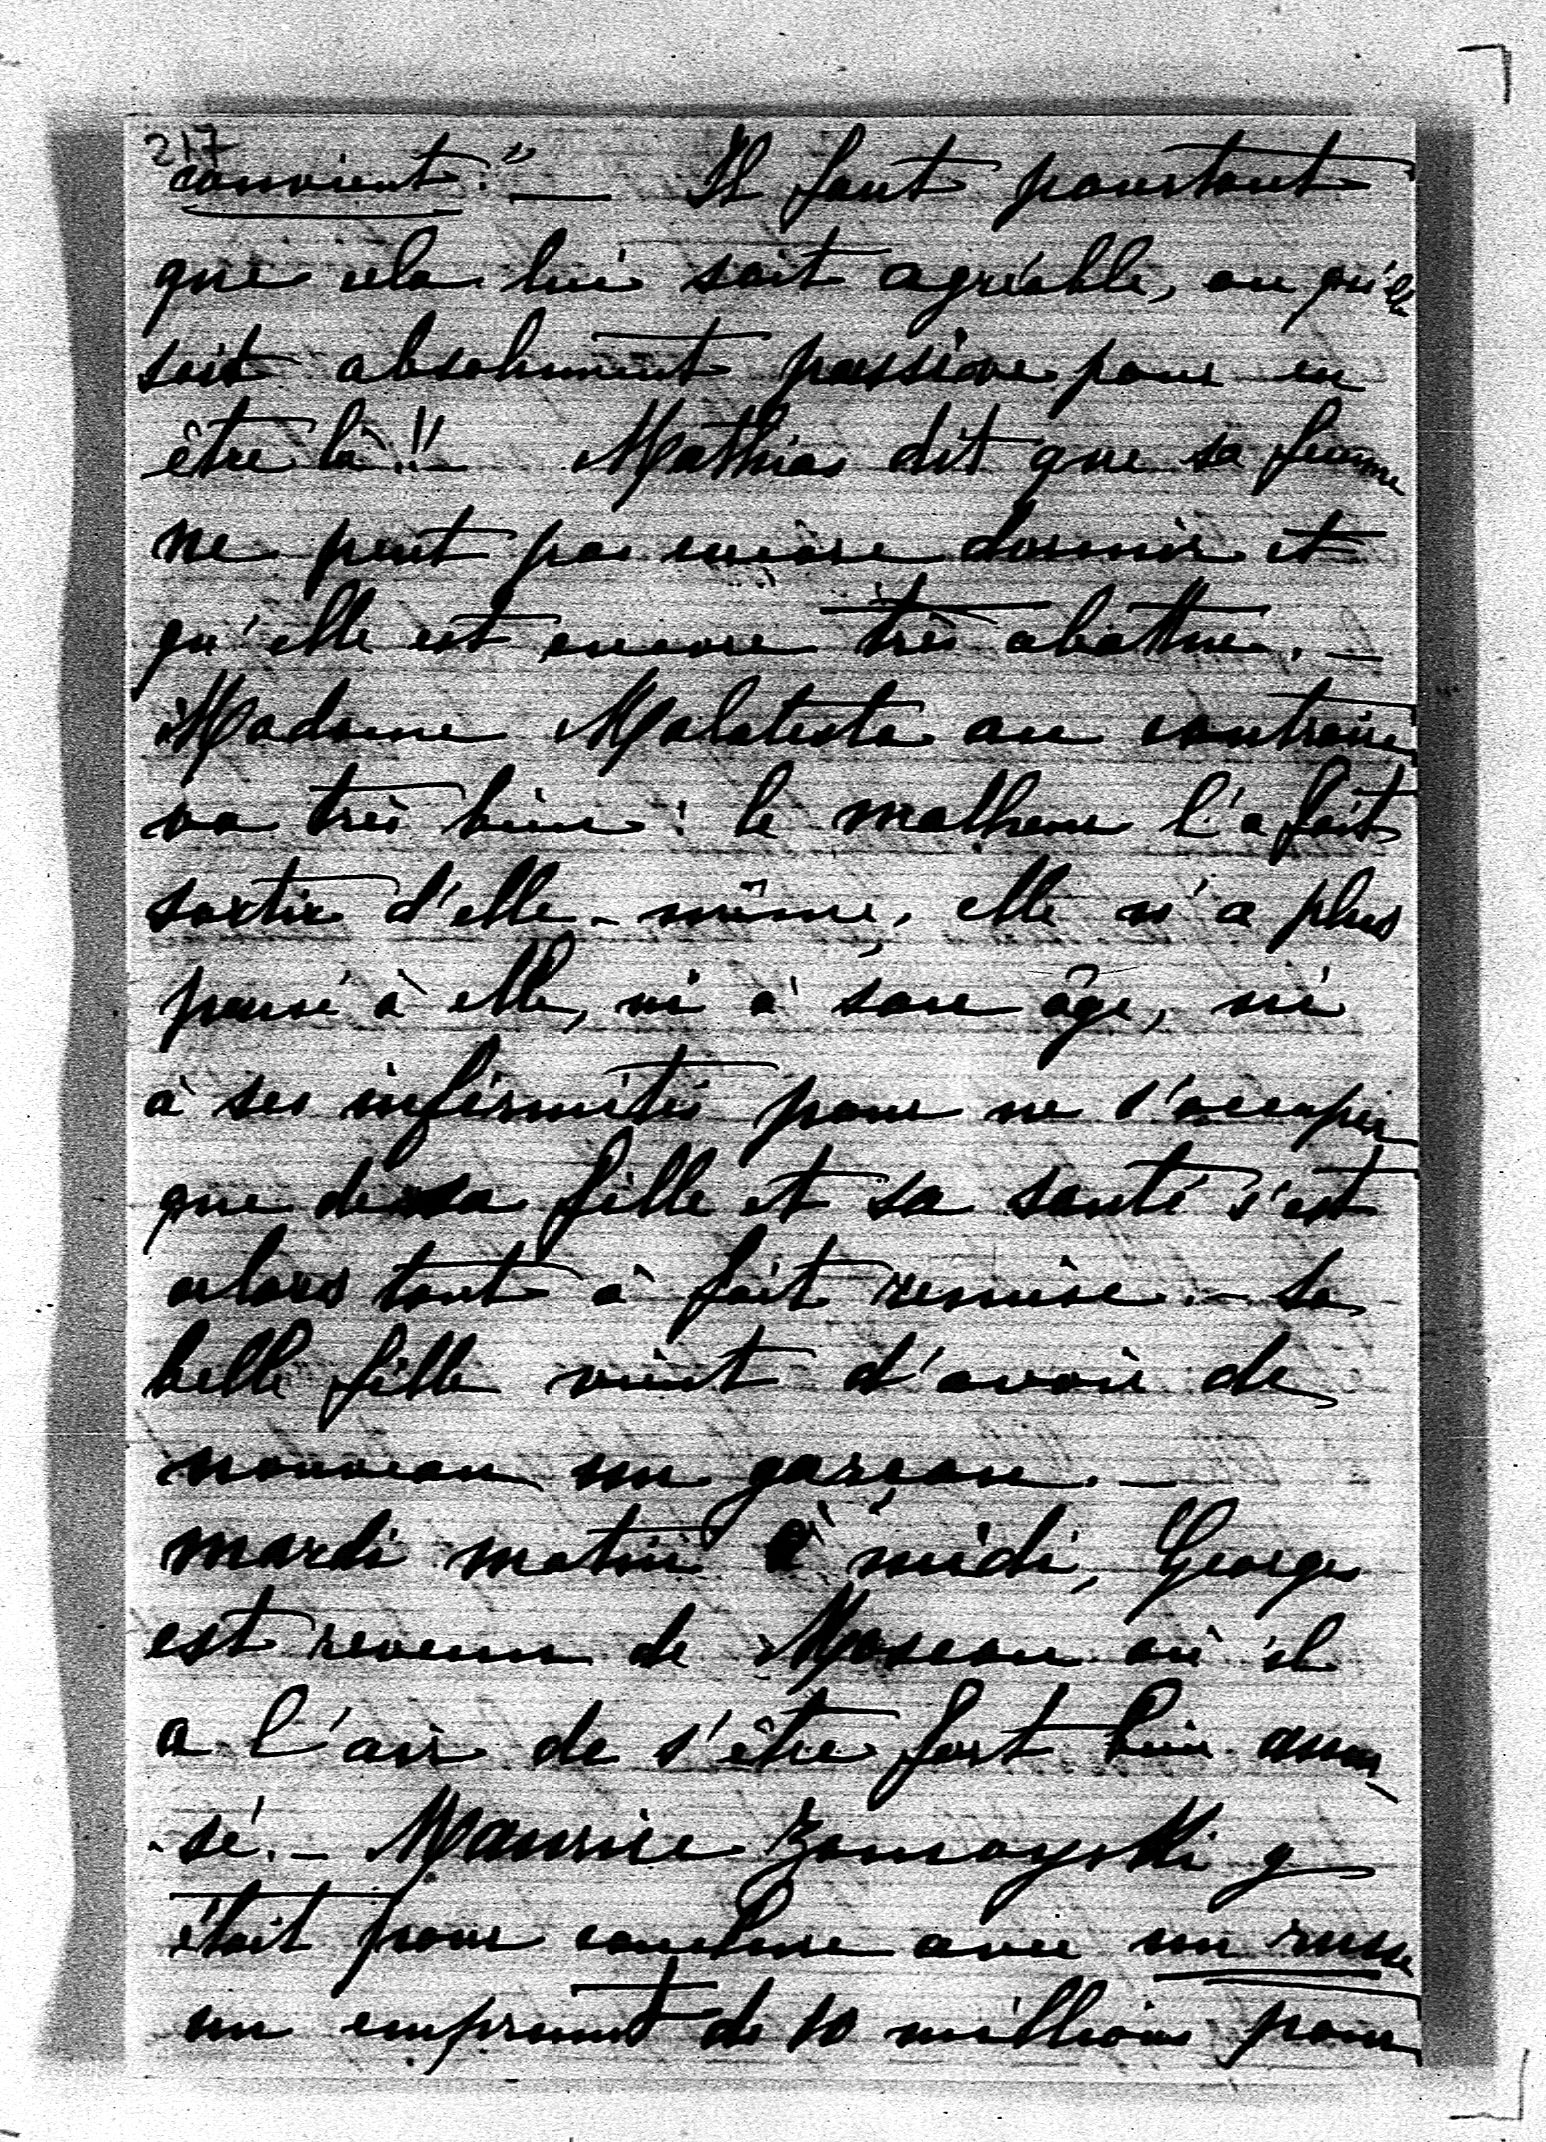 217
convient." — Il faut pourtant
que cela lui soit agréable, ou qu'elle
soit absolument passive pour en
être là !! Mathias dit que sa femme
ne peut pas encore dormir et
qu'elle est encore très abattue. —
Madame Malatesta au contraire
va très bien : le malheur l'a fait
sortir d'elle-même, elle n'a plus
pensé à elle, ni à son âge, ni
à ses infirmités pour ne s'occuper
que de sa fille et sa santé s'est
alors tout à fait remise. – Sa
belle fille vient d'avoir de
nouveau un garçon. —
mardi matin à midi, Georges
est revenu de Moscou où il
a l'air de s'être fort bien amu-
sé. – Maurice Zamoyski y
était pour conclure avec un russe
un emprunt de 10 millions pour